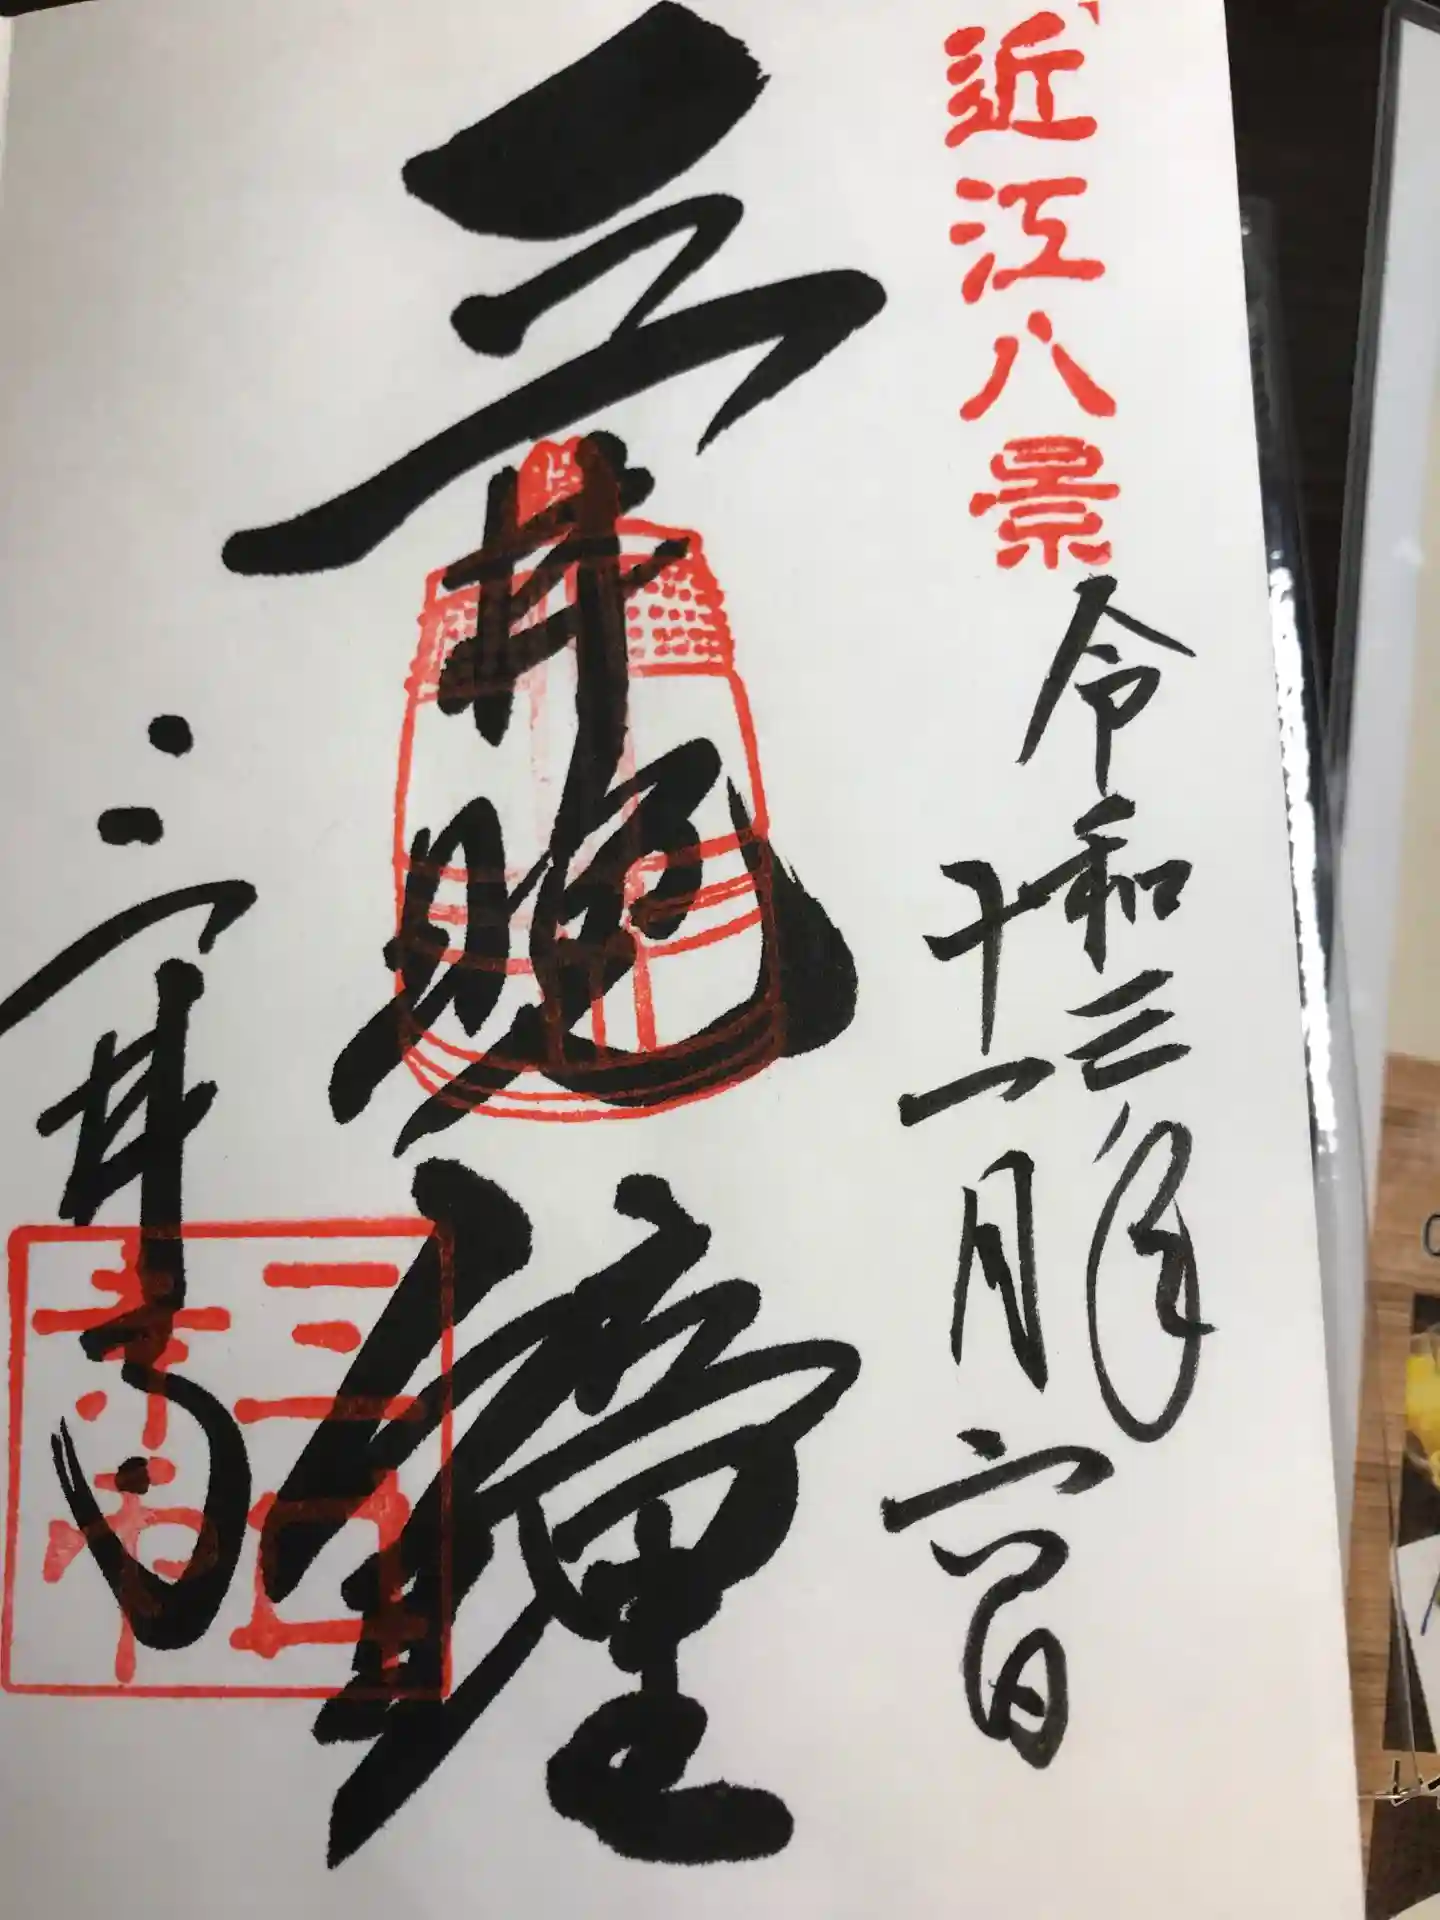 近江八景
令和三年
十一月六日
三井晩鐘
三井寺